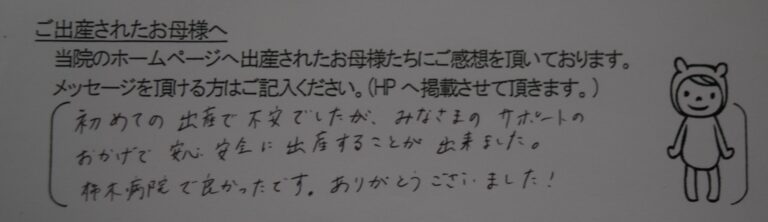 ご出産されたお母様へ
当院のホームページへ出産されたお母様たちにご感想を頂いております。
メッセージを頂ける方はご記入ください。（HPへ掲載させて頂きます。）
初めての出産で不安でしたが、みなさまのサポートの
おかげで安心安全に出産することが出来ました。
柿木病院で良かったです。ありがとうございました！